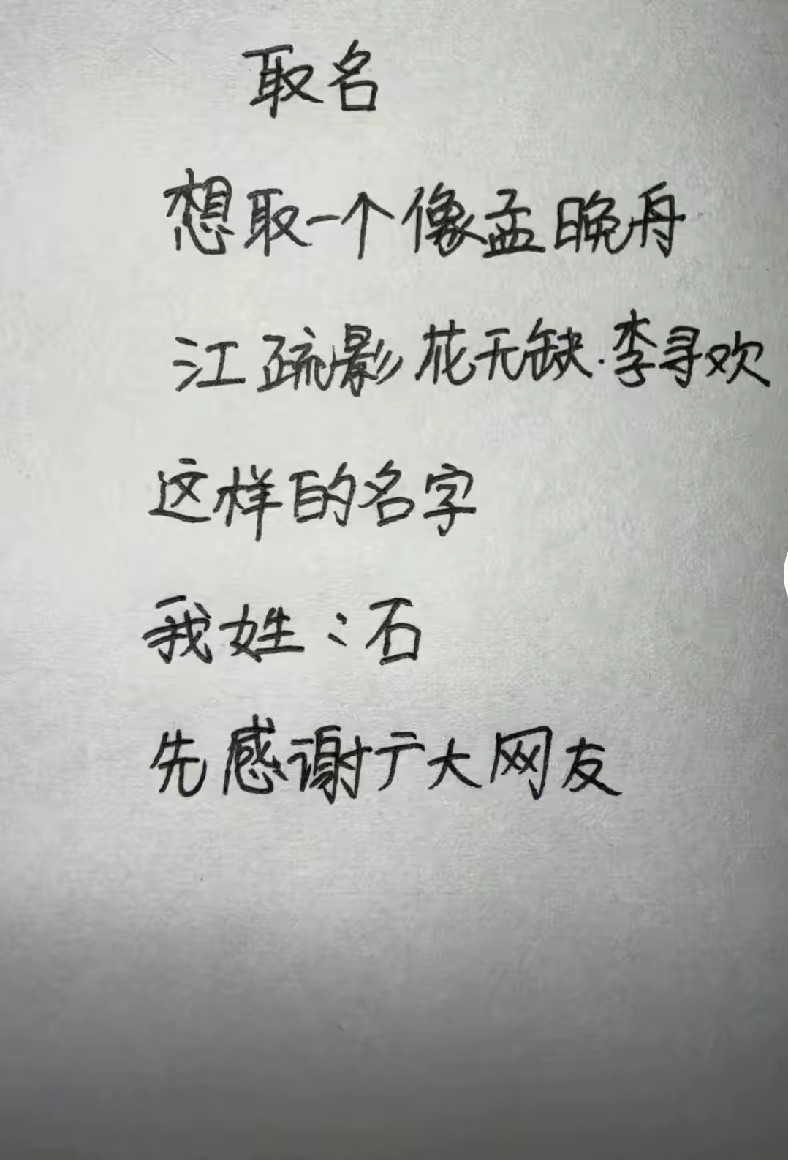 取名
想取一个像孟晚舟
江疏影花无缺.李寻欢
这样的名字
我姓:石
先感谢广大网友